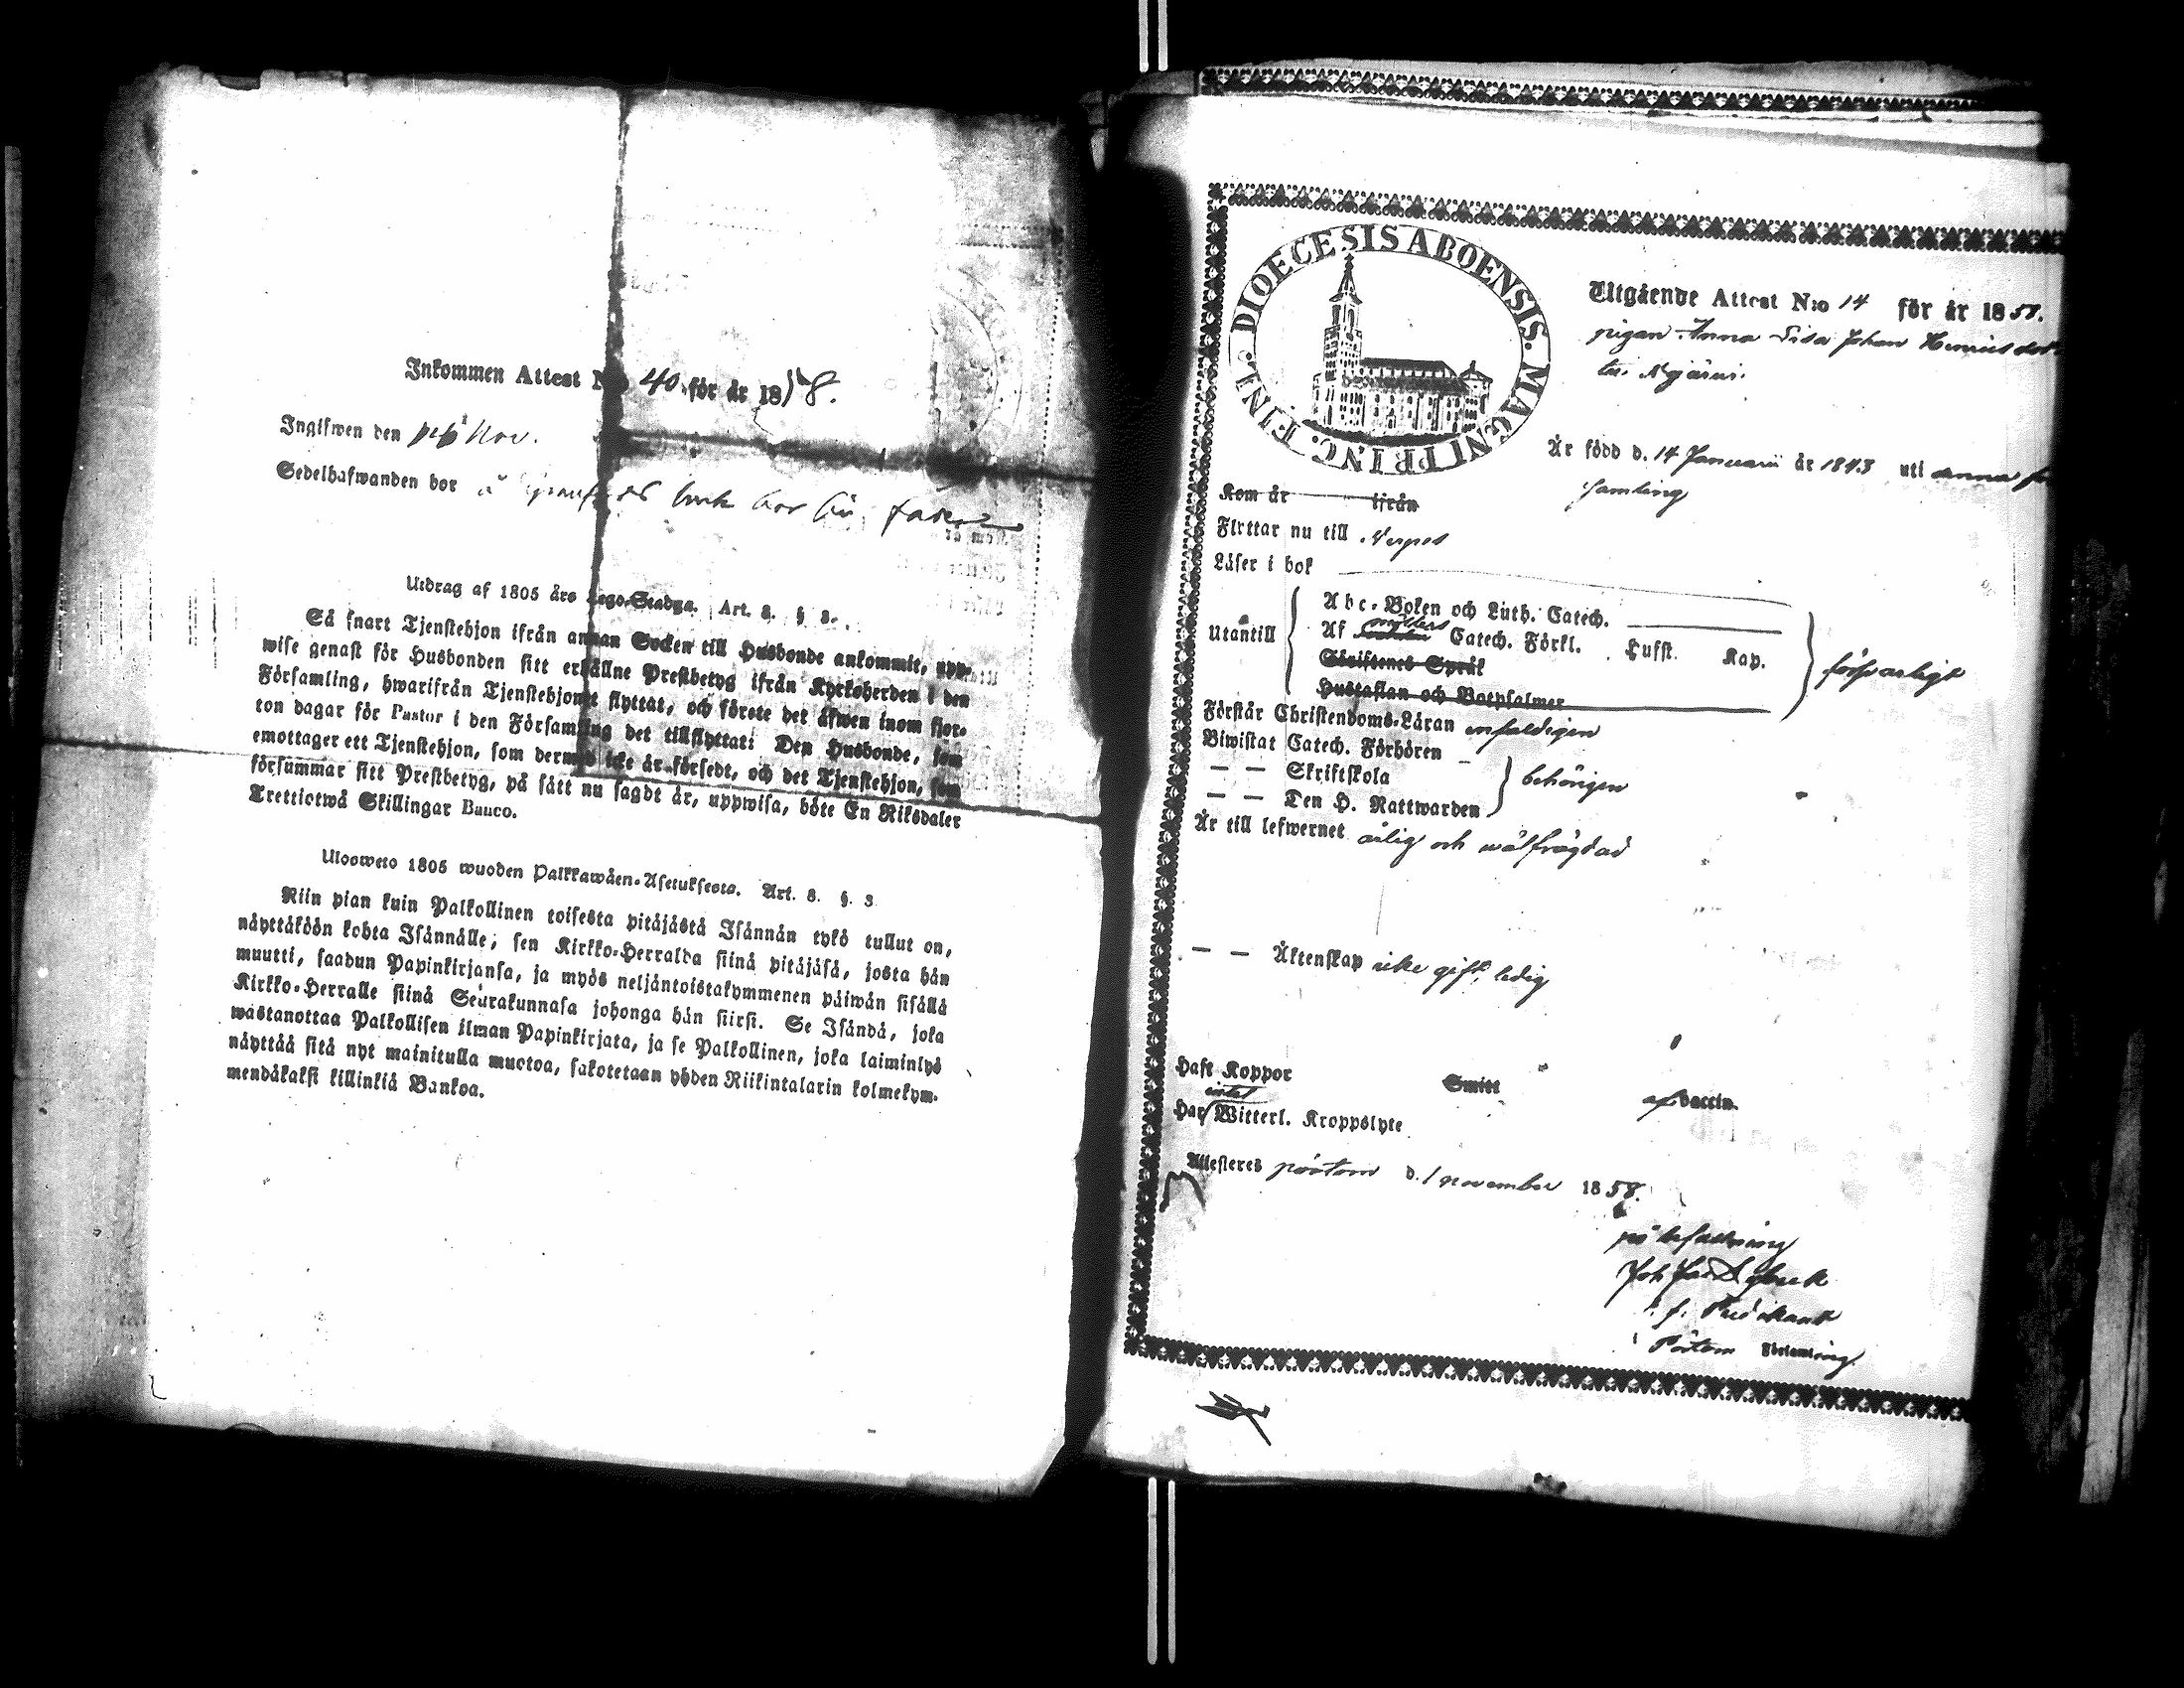 Inkommen Attest N:o 40 för år 1858.
Ingifwen den Nov.
Sedelhafwanden bor å
Utdrag af 1805 års Lego-Stadga. Art. 8. § 3.
Så snart Tjenstehjon ifrån annan Socken till Husbonde ankommit, upp-
wise genast för Husbonden sitt erhållne Prestbetyg ifrån Kyrkoherden i den
Församling, hwarifrån Tjenstehjonet flyttat, och förete det äfwen inom fjor-
ton dagar för Pastor i den Församling det tillflyttat: Den Husbonde, som
emottager ett Tjenstehjon, som dermed icke är försedt, och det Tjenstehjon, som
försummar sitt Prestbetyg, på sätt nu sagdt är, uppwisa, böte En Riksdaler
Trettiotwå Skillingar Banco.
Ulosweto 1805 wuoden Palkkawäen-Asetuksesta. Art. 8. §. 3
Niin pian kuin Palkollinen toisesta pitäjästä Isännän tykö tullut on,
näyttäköön kohta Isännälle, sen Kirkko-Herralda siinä pitäjäsä, josta hän
muutti, saadun Papinkirjansa, ja myös neljäntoistakymmenen päiwän sisällä
Kirkko-Herralle siinä Seurakunnasa johonga hän siirsi. Se Isändä, joka
wastanottaa Palkollisen ilman Papinkirjata, ja se Palkollinen, joka laiminlyö
näyttää sitä nyt mainitulla muotoa, sakotetaan yhden Riikintalarin kolmekym-
mendäkaksi killinkiä Bankoa.
DIOECESIS ABOENSIS. MAGNI PRINC. FINL.
Utgående Attest N:o 14 för år 1858.
pigan Anna Lisa Johan Henricsdot
Är född d. 14 Januarii år 1843 uti denna för
samling
Kom år ifrån
Flyttar nu till Nerpes
Läser i bok
Utantill
Abc-Boken och Luth. Catech.
Af Catech. Förkl. Husst. Kap.
Skriftenes Språk
Hustaflan och Botpsalmer
försvarligt
Förstår Christendoms-Läran enfaldigen
Biwistat Catech. Förhören
— — Skriftskola
— — Den H. Nattwarden
behörigen
Är till lefwernet ärlig och wälfrägdad
— — Äktenskap icke gift, ledig
Haft Koppor Smitt af Vaccin.
intet
Har Witterl. Kroppslyte
Attesteres Pörtom d. 1 november 1858.
på befallning
i Pörtom Församling.